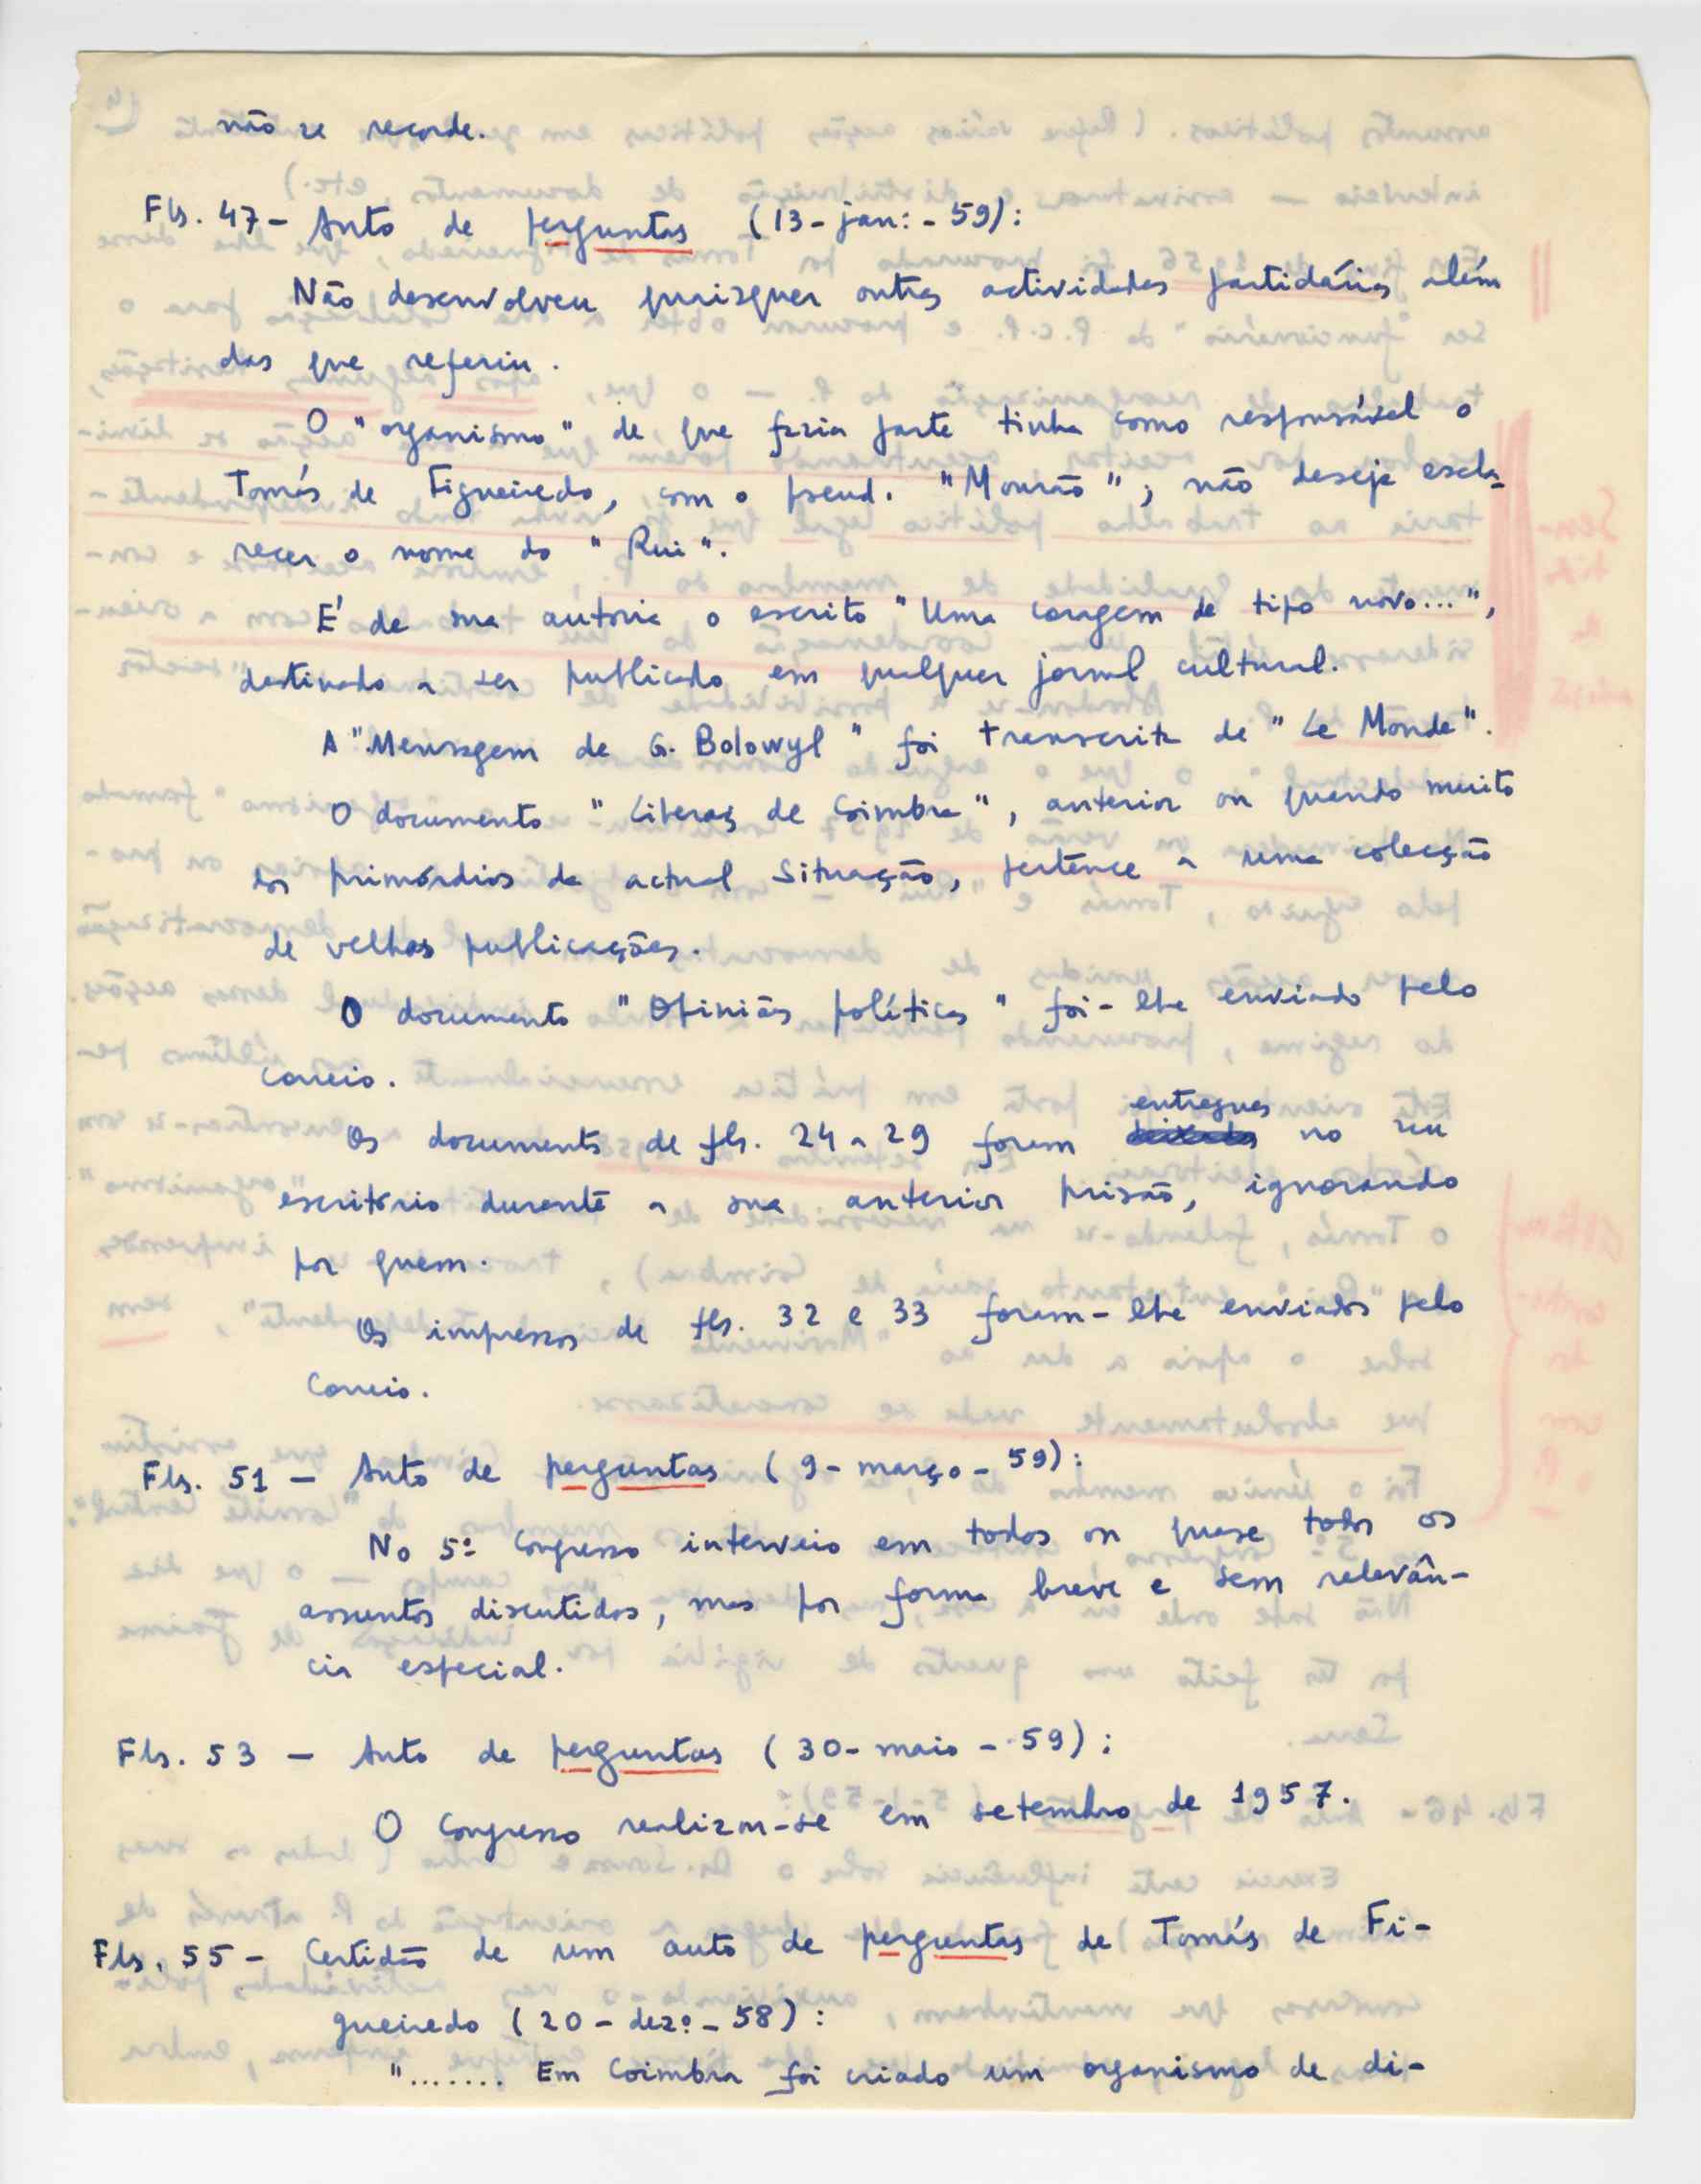 não se recorde.
Fls. 47 - Auto de perguntas (13-jan:-59):
Não desenvolveu quaisquer outras actividades partidárias além
das que referiu.
O "organismo" de que fazia parte tinha como responsável o
Tomás de Figueiredo, com o pseud. "Mourão"; não deseja escla-
recer o nome do "Rui".
É de sua autoria o escrito "Uma coragem de tipo novo...",
destinado a ser publicado em qualquer jornal cultural.
A "Mensagem de G. Bolowyl" foi transcrita de "Le Monde".
O documento "Literas de Coimbra", anterior ou quando muito
dos primórdios da actual Situação, pertence a uma colecção
de velhas publicações.
O documento "Opiniões políticas" foi-lhe enviado pelo
correio.
Os documentos de fls. 24 a 29 foram entregues no seu
escritório durante a sua anterior prisão, ignorando
por quem.
Os impressos de fls. 32 e 33 foram-lhe enviados pelo
Correio.
Fls. 51 - Auto de perguntas (9-março-59):
No 5º Congresso interveio em todos ou quase todos os
assuntos discutidos, mas por forma breve e sem relevân-
cia especial.
Fls. 53 - Auto de perguntas (30-maio-59):
O Congresso realizou-se em setembro de 1957.
Fls. 55 - Certidão de um auto de perguntas de Tomás de Fi-
gueiredo (20-dezº-58):
"....... Em Coimbra foi criado um organismo de di-